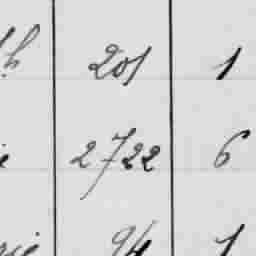 201 1
2722 6
94 1